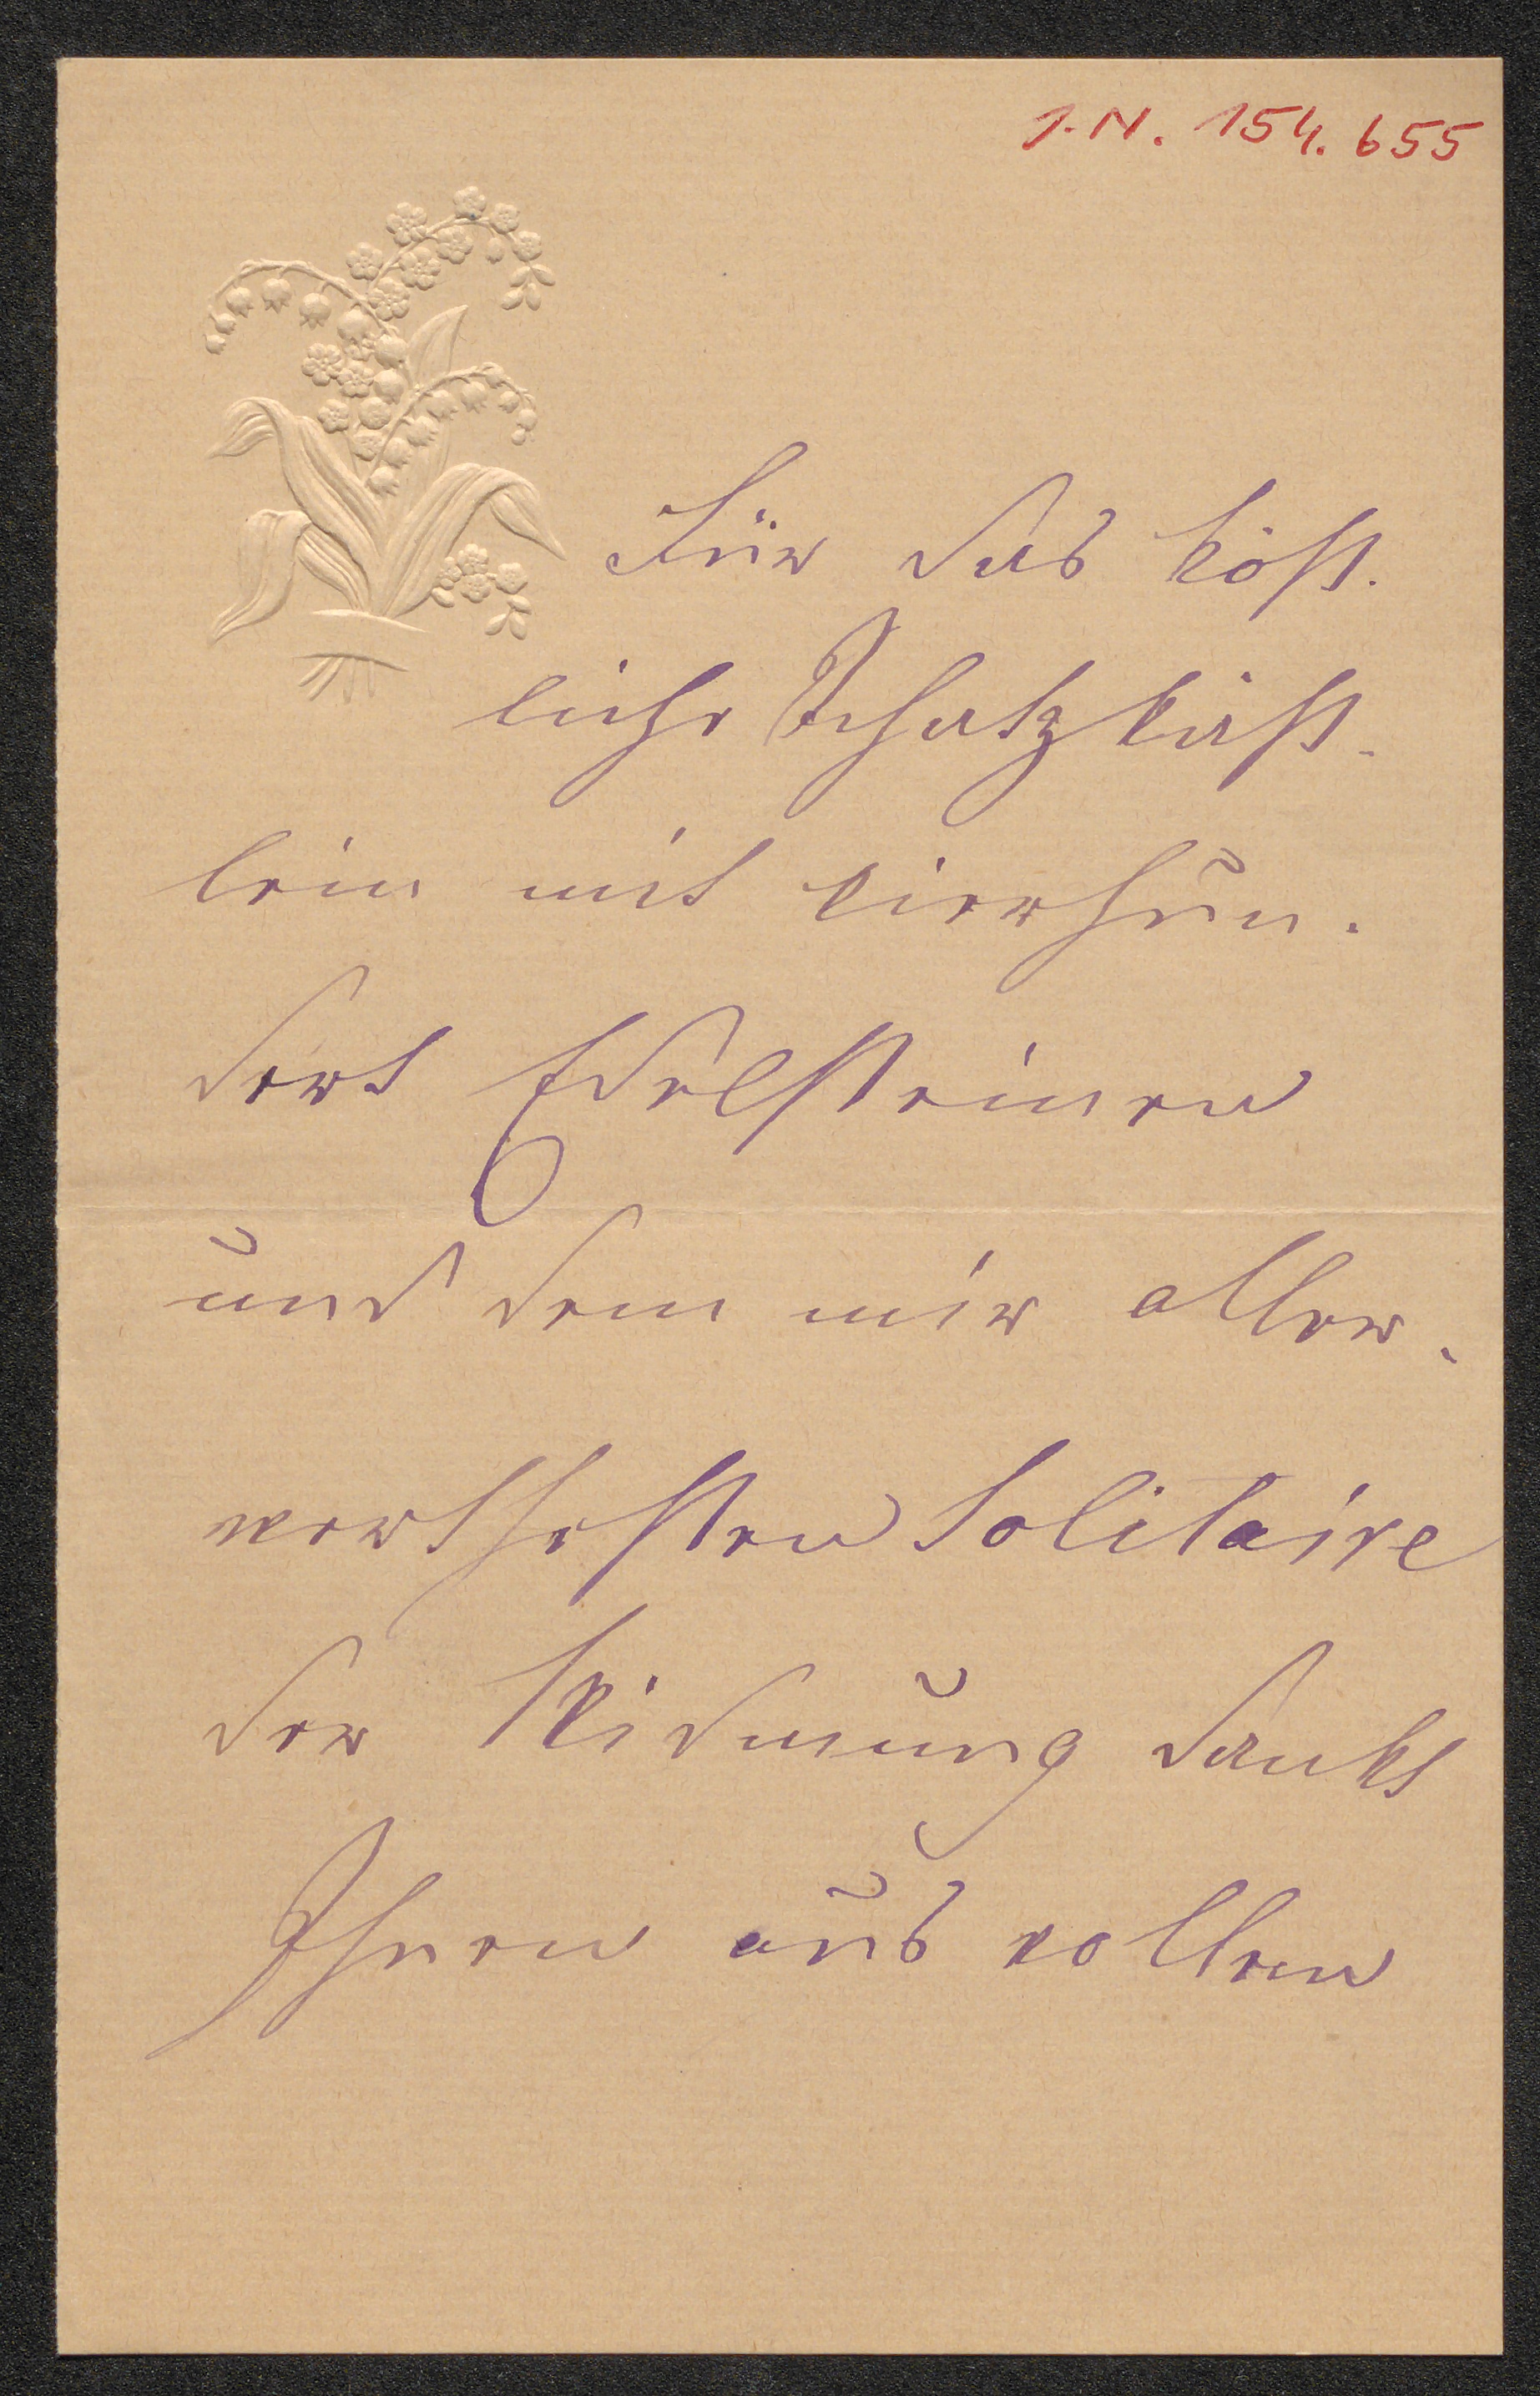 I.N. 154.655
Für das köst-
liche Schatzkäst-
lein mit vierhun-
dert Edelsteinen
und dem mir aller-
werthesten Solitaire
der Widmung dankt
Ihnen aus vollem